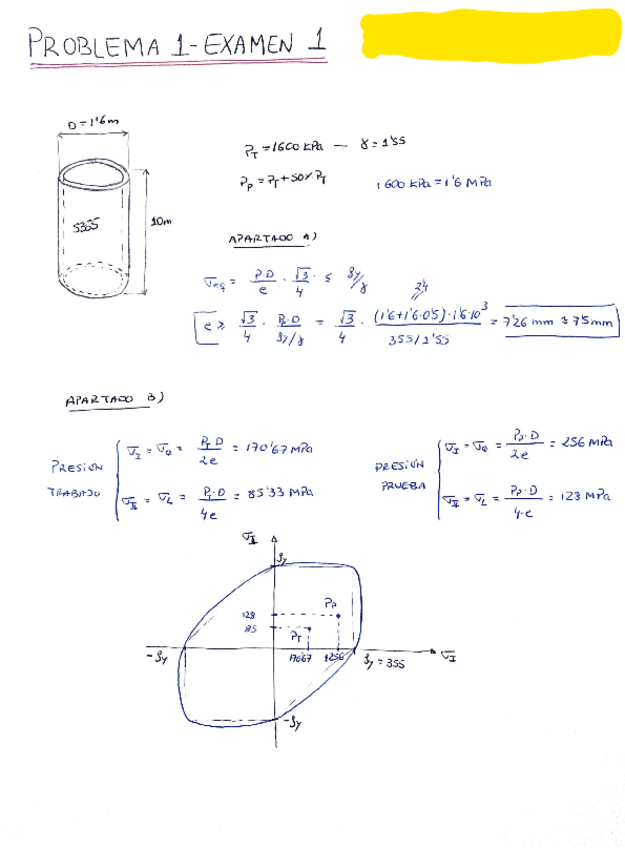 PROBLEMA 1-EXAMEN 1
D=1'6m
S355
10m
P_T = 1600 kPa — γ = 1'55
P_P = P_T + 50% P_T
1600 kPa = 1'6 MPa
APARTADO A)
σ_eq = P·D/e · √3/4 · ≤ Sy/γ
2'4
e ≥ √3/4 · P_P·D/Sy/γ = √3/4 · (1'6+1'6·0'5)·1'6·10³/355/1'55 = 7'26 mm ≈ 7'5mm
APARTADO B)
PRESIÓN TRABAJO
σ_I = σ_θ = P_T·D/2e = 170'67 MPa
σ_II = σ_L = P_T·D/4e = 85'33 MPa
PRESIÓN PRUEBA
σ_I = σ_θ = P_P·D/2e = 256 MPa
σ_II = σ_L = P_P·D/4·e = 128 MPa
σ_II
Sy
128
P_P
85
P_T
-Sy
170'67
256
Sy = 355
σ_I
-Sy